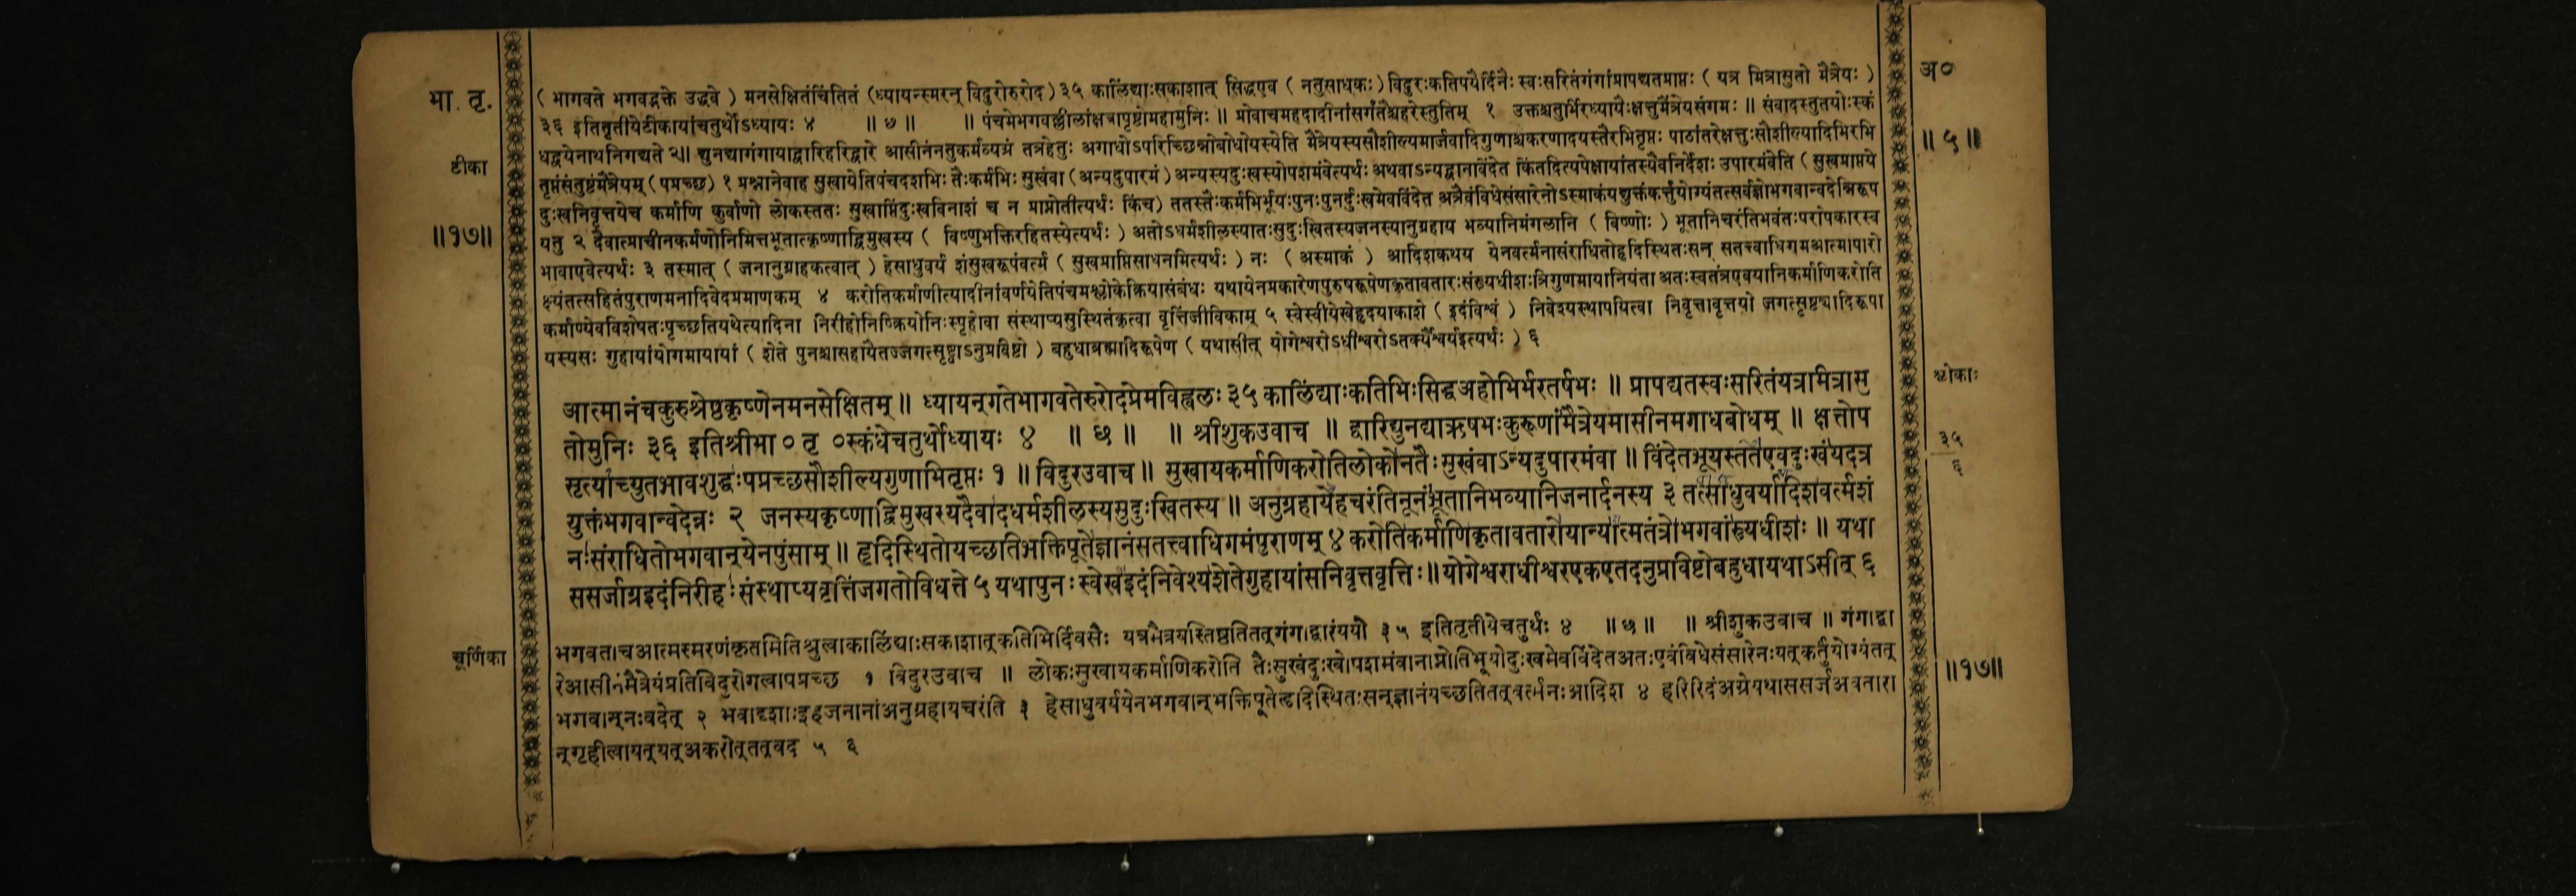 भा. तृ.
टीका
॥१७॥
( भागवते भगवद्भक्ते उद्धवे ) मनसेक्षितंचिंतितं (ध्यायन्स्मरन् विदुरोरुरोद)३५ कालिंद्याःसकाशात् सिद्धएव ( नतुसाधकः)विदुरःकतिपयैर्दिनैः स्वःसरितंगंगांप्रापद्यतप्राप्तः ( यत्र मित्रासुतो मैत्रेयः )
३६ इतितृतीयेटीकायांचतुर्थोऽध्यायः ४ ॥ ७ ॥ ॥ पंचमेभगवल्लीलांक्षत्रापृष्टोमहामुनिः ॥ प्रोवाचमहदादीनांसर्गंतैश्चहरेस्तुतिम् १ उक्तश्चतुर्भिरध्यायैःक्षत्तुर्मैत्रेयसंगमः ॥ संवादस्तुतयोःस्कं
धद्वयेनाथनिगद्यते २॥ द्युनद्यागंगायाद्वारिहरिद्वारे आसीनंनतुकर्मव्यग्रं तत्रहेतुः अगाधोऽपरिच्छिन्नोबोधोयस्येति मैत्रेयस्यसौशील्यमार्जवादिगुणाश्चकरणादयस्तैरभितृप्तः पाठांतरेक्षत्तुःसौशील्यादिभिरभि
तृप्तंसंतुष्टंमैत्रेयम् (पप्रच्छ) १ प्रश्नानेवाह सुखायेतिपंचदशभिः तैःकर्मभिः सुखंवा (अन्यदुपारमं ) अन्यस्यदुःखस्योपशमंवेत्यर्थः अथवाऽन्यद्वानविंदेत किंतदित्यपेक्षायांतस्यैवनिर्देशः उपारमंवेति ( सुखप्राप्तये
दुःखनिवृत्तयेच कर्माणि कुर्वाणो लोकस्ततः सुखाप्तिंदुःखविनाशं च न प्राप्नोतीत्यर्थः किंच) ततस्तैःकर्मभिर्भूयःपुनःपुनर्दुःखमेवविंदेत अत्रैवंविधेसंसारेनोऽस्माकंयद्युक्तंकर्त्तुंयोग्यंतत्सर्वज्ञोभगवान्वदेन्निरूप
यतु २ दैवात्प्राचीनकर्मणोनिमित्तभूतात्कृष्णाद्विमुखस्य ( विष्णुभक्तिरहितस्येत्यर्थः ) अतोऽधर्मशीलस्यातःसुदुःखितस्यजनस्यानुग्रहाय भव्यानिमंगलानि ( विष्णोः ) भूतानिचरंतिभवंतःपरोपकारस्व
भावाएवेत्यर्थः ३ तस्मात् ( जनानुग्राहकत्वात् ) हेसाधुवर्य शंसुखरूपंवर्त्म ( सुखप्राप्तिसाधनमित्यर्थः ) नः ( अस्माकं ) आदिशकथय येनवर्त्मनासंराधितोहृदिस्थितःसन् सतत्त्वाधिगमआत्मापरो
क्ष्यंतत्सहितंपुराणमनादिवेदप्रमाणकम् ४ करोतिकर्माणीत्यादीनांवर्णयेतिपंचमश्लोकेक्रियासंबंधः यथायेनप्रकारेणपुरुषरूपेणकृतावतारःसंत्र्यधीशःत्रिगुणमायानियंता अतःस्वतंत्रएवयानिकर्माणिकरोति
कर्माण्येवविशेषतःपृच्छतियथेत्यादिना निरीहोनिष्क्रियोनिःस्पृहोवा संस्थाप्यसुस्थितंकृत्वा वृत्तिंजीविकाम् ५ स्वेस्वीयेखेहृदयाकाशे ( इदंविश्वं ) निवेश्यस्थापयित्वा निवृत्तावृत्तयो जगत्सृष्ट्यादिरूपा
यस्यसः गुहायांयोगमायायां ( शेते पुनश्चासहायैतज्जगत्सृष्ट्वाऽनुप्रविष्टो ) बहुधाब्रह्मादिरूपेण ( यथासीत् योगेश्वरोऽधीश्वरोऽतर्क्यैश्वर्यइत्यर्थः ) ६
आत्मानंचकुरुश्रेष्ठकृष्णेनमनसेक्षितम् ॥ ध्यायन्गतेभागवतेरुरोदप्रेमविह्वलः ३५ कालिंद्याःकतिभिःसिद्धअहोभिर्भरतर्षभः ॥ प्रापद्यतस्वःसरितंयत्रमित्रासु
तोमुनिः ३६ इतिश्रीभा० तृ ०स्कंधेचतुर्थोध्यायः ४ ॥ छ ॥ ॥ श्रीशुकउवाच ॥ द्वारिद्युनद्याऋषभःकुरूणांमैत्रेयमासीनमगाधबोधम् ॥ क्षत्तोप
सृत्याच्युतभावशुद्धःपप्रच्छसौशील्यगुणाभितृप्तः १ ॥ विदुरउवाच ॥ सुखायकर्माणिकरोतिलोकोनतैःसुखंवाऽन्यदुपारमंवा ॥ विंदेतभूयस्ततएवदुःखंयदत्र
युक्तंभगवान्वदेन्नः २ जनस्यकृष्णाद्विमुखस्यदैवादधर्मशीलस्यसुदुःखितस्य ॥ अनुग्रहायेहचरंतिनूनंभूतानिभव्यानिजनार्दनस्य ३ तत्साधुवर्यादिशवर्त्मशं
नःसंराधितोभगवान्येनपुंसाम् ॥ हृदिस्थितोयच्छतिभक्तिपूतेज्ञानंसतत्त्वाधिगमंपुराणम् ४ करोतिकर्माणिकृतावतारोयान्यात्मतंत्रोभगवांस्त्र्यधीशः ॥ यथा
ससर्जाग्रइदंनिरीहःसंस्थाप्यवृत्तिंजगतोविधत्ते ५ यथापुनःस्वेखइदंनिवेश्यशेतेगुहायांसनिवृत्तवृत्तिः॥योगेश्वराधीश्वरएकएतदनुप्रविष्टोबहुधायथाऽसीत् ६
चूर्णिका
भगवताचआत्मस्मरणंकृतमितिश्रुत्वाकालिंद्याःसकाशात्कतिभिर्दिवसैः यत्रमैत्रेयस्तिष्ठतितत्गंगाद्वारंययौ ३५ इतितृतीयेचतुर्थः ४ ॥ छ ॥ ॥ श्रीशुकउवाच ॥ गंगाद्वा
रेआसीनंमैत्रेयंप्रतिविदुरोगत्वापप्रच्छ १ विदुरउवाच ॥ लोकःसुखायकर्माणिकरोति तैःसुखंदुःखोपशमंवानाप्नोतिभूयोदुःखमेवविंदेतअतःएवंविधेसंसारेनःयत्कर्तुंयोग्यंतत्
भगवान्नःवदेत् २ भवादृशाःइहजनानांअनुग्रहायचरंति ३ हेसाधुवर्ययेनभगवान्भक्तिपूतेहृदिस्थितःसन्ज्ञानंयच्छतितत्वर्त्मनःआदिश ४ हरिरिदंअग्रेयथाससर्जअवतारा
न्गृहीत्वायत्यत्अकरोत्तत्वद ५ ६
अ०
॥५॥
श्लोकाः
३५
६
॥१७॥